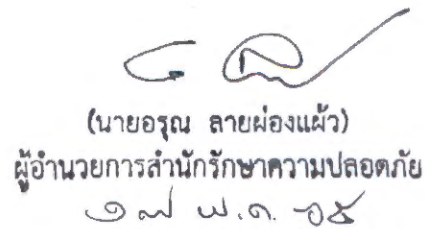 (นายอรุณ ลายผ่องแผ้ว)
ผู้อำนวยการสำนักรักษาความปลอดภัย
๑๗ พ.ค. ๖๕